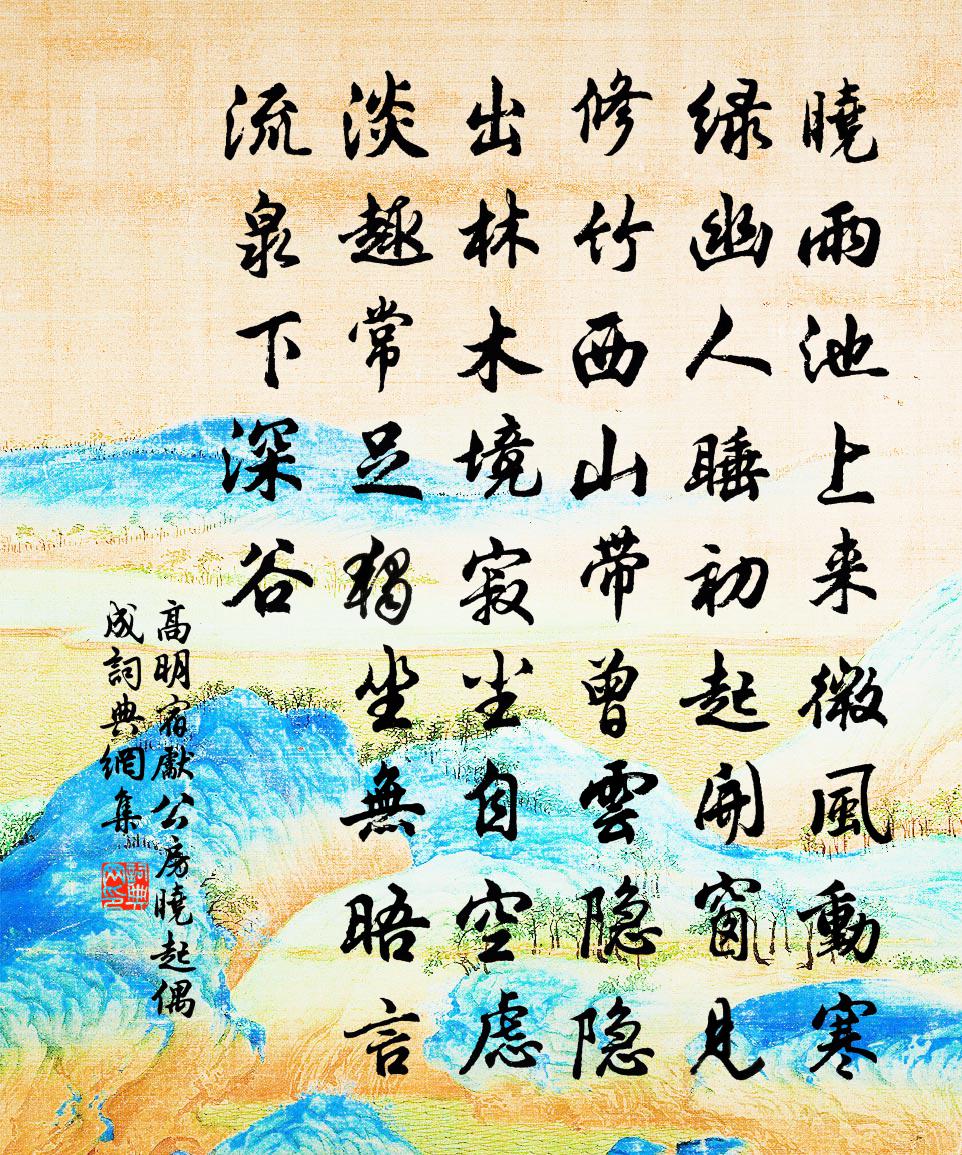 曉雨池上来微風動寒
緑幽人睡初起開窗見
修竹西山带曾雲隐隐
出林木境寂尘自空虑
淡趣常足獨坐無晤言
流泉下深谷
高明宿獻公房曉起偶
成詞典網集